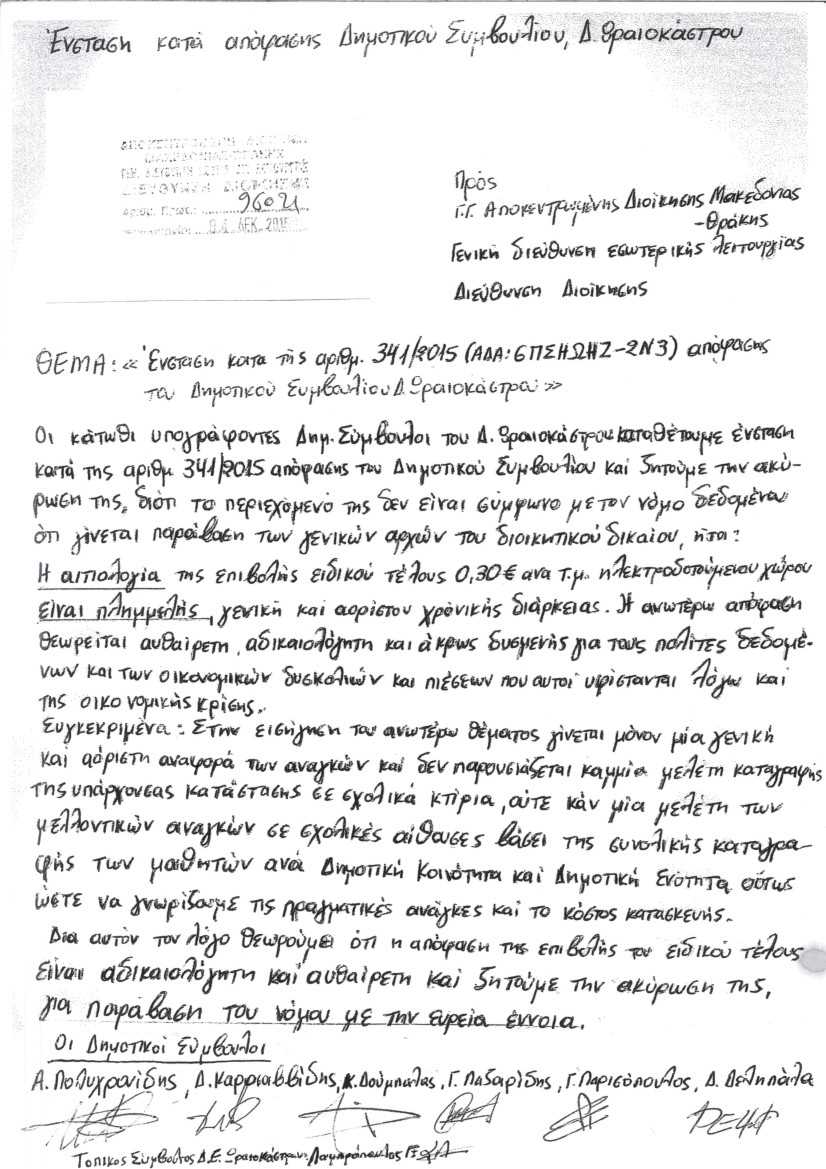 Ένσταση κατά απόφασης Δημοτικού Συμβουλίου, Δ. Ωραιοκάστρου
ΑΠΟΚΕΝΤΡΩΜΕΝΗ ΔΙΟΙΚΗΣΗ
ΜΑΚΕΔΟΝΙΑΣ-ΘΡΑΚΗΣ
ΔΙΕΥΘΥΝΣΗ ΔΙΟΙΚΗΣΗΣ
Αριθμ. Πρωτ.: 96021
04 ΔΕΚ. 2015
Πρός
Γ.Γ. Αποκεντρωμένης Διοίκησης Μακεδονίας
-Θράκης
Γενική διεύθυνση εσωτερικής λειτουργίας
Διεύθυνση Διοίκησης
ΘΕΜΑ: «Ένσταση κατα της αριθμ. 341/2015 (ΑΔΑ: 6ΠΣΗΩΗΖ-2Ν3) απόφασης
του Δημοτικού Συμβουλίου Δ. Ωραιοκάστρου»
Οι κάτωθι υπογράφοντες Δημ. Σύμβουλοι του Δ. Ωραιοκάστρου καταθέτουμε ένσταση
κατά της αριθμ 341/2015 απόφασης του Δημοτικού Συμβουλίου και ζητούμε την ακύ-
ρωση της, διότι το περιεχόμενό της δεν είναι σύμφωνο με τον νόμο δεδομένου
ότι γίνεται παράβαση των γενικών αρχών του διοικητικού δικαίου, ήτοι:
Η αιτιολογία της επιβολής ειδικού τέλους 0,30€ ανα τ.μ. ηλεκτροδοτούμενου χώρου
είναι πλημμελής, γενική και αορίστου χρονικής διάρκειας. Η ανωτέρω απόφαση
θεωρείται αυθαίρετη, αδικαιολόγητη και άκρως δυσμενής για τους πολίτες δεδομέ-
νων και των οικονομικών δυσκολιών και πιέσεων που αυτοί υφίστανται λόγω και
της οικονομικής κρίσης.
Συγκεκριμένα: Στην εισήγηση του ανωτέρω θέματος γίνεται μόνον μία γενική
και αόριστη αναφορά των αναγκών και δεν παρουσιάζεται καμμία μελέτη καταγραφής
της υπάρχουσας κατάστασης σε σχολικά κτίρια, ούτε κάν μία μελέτη των
μελλοντικών αναγκών σε σχολικές αίθουσες βάσει της συνολικής καταγρα-
φής των μαθητών ανά Δημοτική Κοινότητα και Δημοτική Ενότητα ούτως
ώστε να γνωρίζουμε τις πραγματικές ανάγκες και το κόστος κατασκευής.
Δια αυτόν τον λόγο θεωρούμε ότι η απόφαση της επιβολής του ειδικού τέλους
είναι αδικαιολόγητη και αυθαίρετη και ζητούμε την ακύρωση της,
για παράβαση του νόμου με την ευρεία έννοια.
Οι Δημοτικοί Σύμβουλοι
Α. Πολυχρονίδης, Δ. Καρσαββίδης, Κ. Δούμπαλας, Γ. Παζαρίδης, Γ. Παρισόπουλος, Δ. Δεληπάλα
Τοπικος Σύμβουλος Δ.Ε. Ωραιοκάστρου: Λαμπρόπουλος